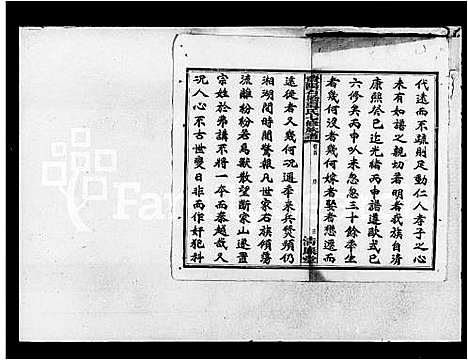 代遠而不疏則足動仁人孝子之心
未有如譜之親切若明者我族自清
康熙癸巳迄光緒丙申譜遵歐式已
六修矣丙申以來忽忽三十餘年生
者幾何沒者幾何嫁者娶者戀還而
遠徙者又幾何况連年來兵燹頻仍
湘湖間時聞警報凡世家右族傾蕩
流離紛紛若鳥獸散望斷家山遂置
宗姓於弗講不將一本而秦越哉又
况人心不古世變日非而作奸犯科
七修族譜
卷首
序
清廉堂